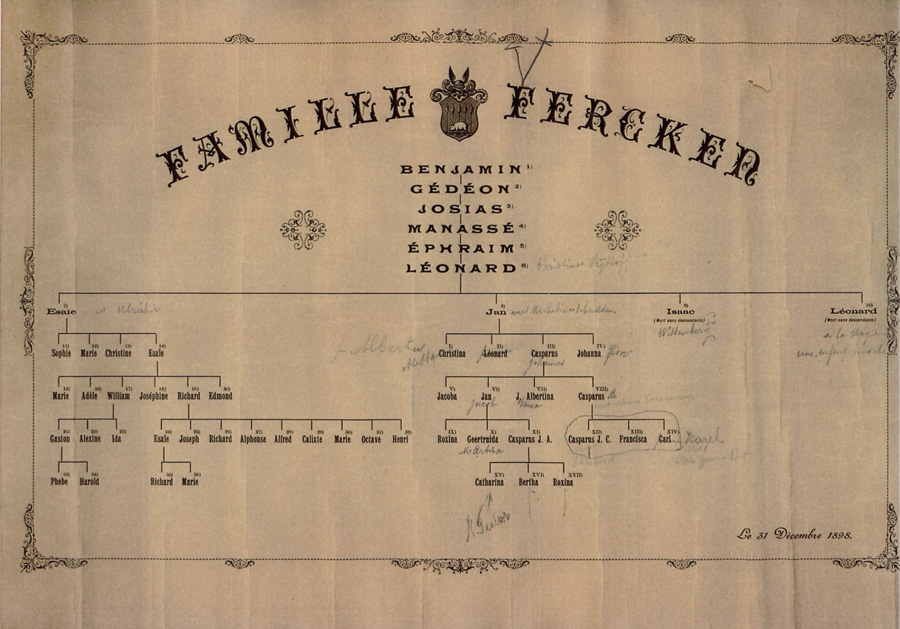 FAMILLE FERCKEN
BENJAMIN 1)
GÉDÉON 2)
JOSIAS 3)
MANASSÉ 4)
ÉPHRAIM 5)
LÉONARD 6)
7) 8) 9) 10)
Esaïe Jan Isaac Léonard
(Mort sans descendants) (Mort sans descendants)
Wittenberg
Albertus
11) 12) 13) 14) I) II) III) IV)
Sophie Marie Christine Esaïe Christina Léonard Casparus Johanna
Johannes
15) 16) 17) 18) 19) 20) V) VI) VII) VIII)
Marie Adèle William Joséphine Richard Edmond Jacoba Jan J. Albertina Casparus
Jacob
21) 22) 23) 24) 25) 26) 27) 28) 29) 30) 31) 32) IX) X) XI) XII) XIII) XIV)
Gaston Alexine Ida Esaïe Joseph Richard Alphonse Alfred Calixte Marie Octave Henri Roxina Geertruida Casparus J. A. Casparus J. C. Francisca Carl
Karel
Martina
33) 34) 35) 36) XV) XVI) XVII)
Phebe Harold Richard Marie Catharina Bertha Roxina
Le 31 Décembre 1898.